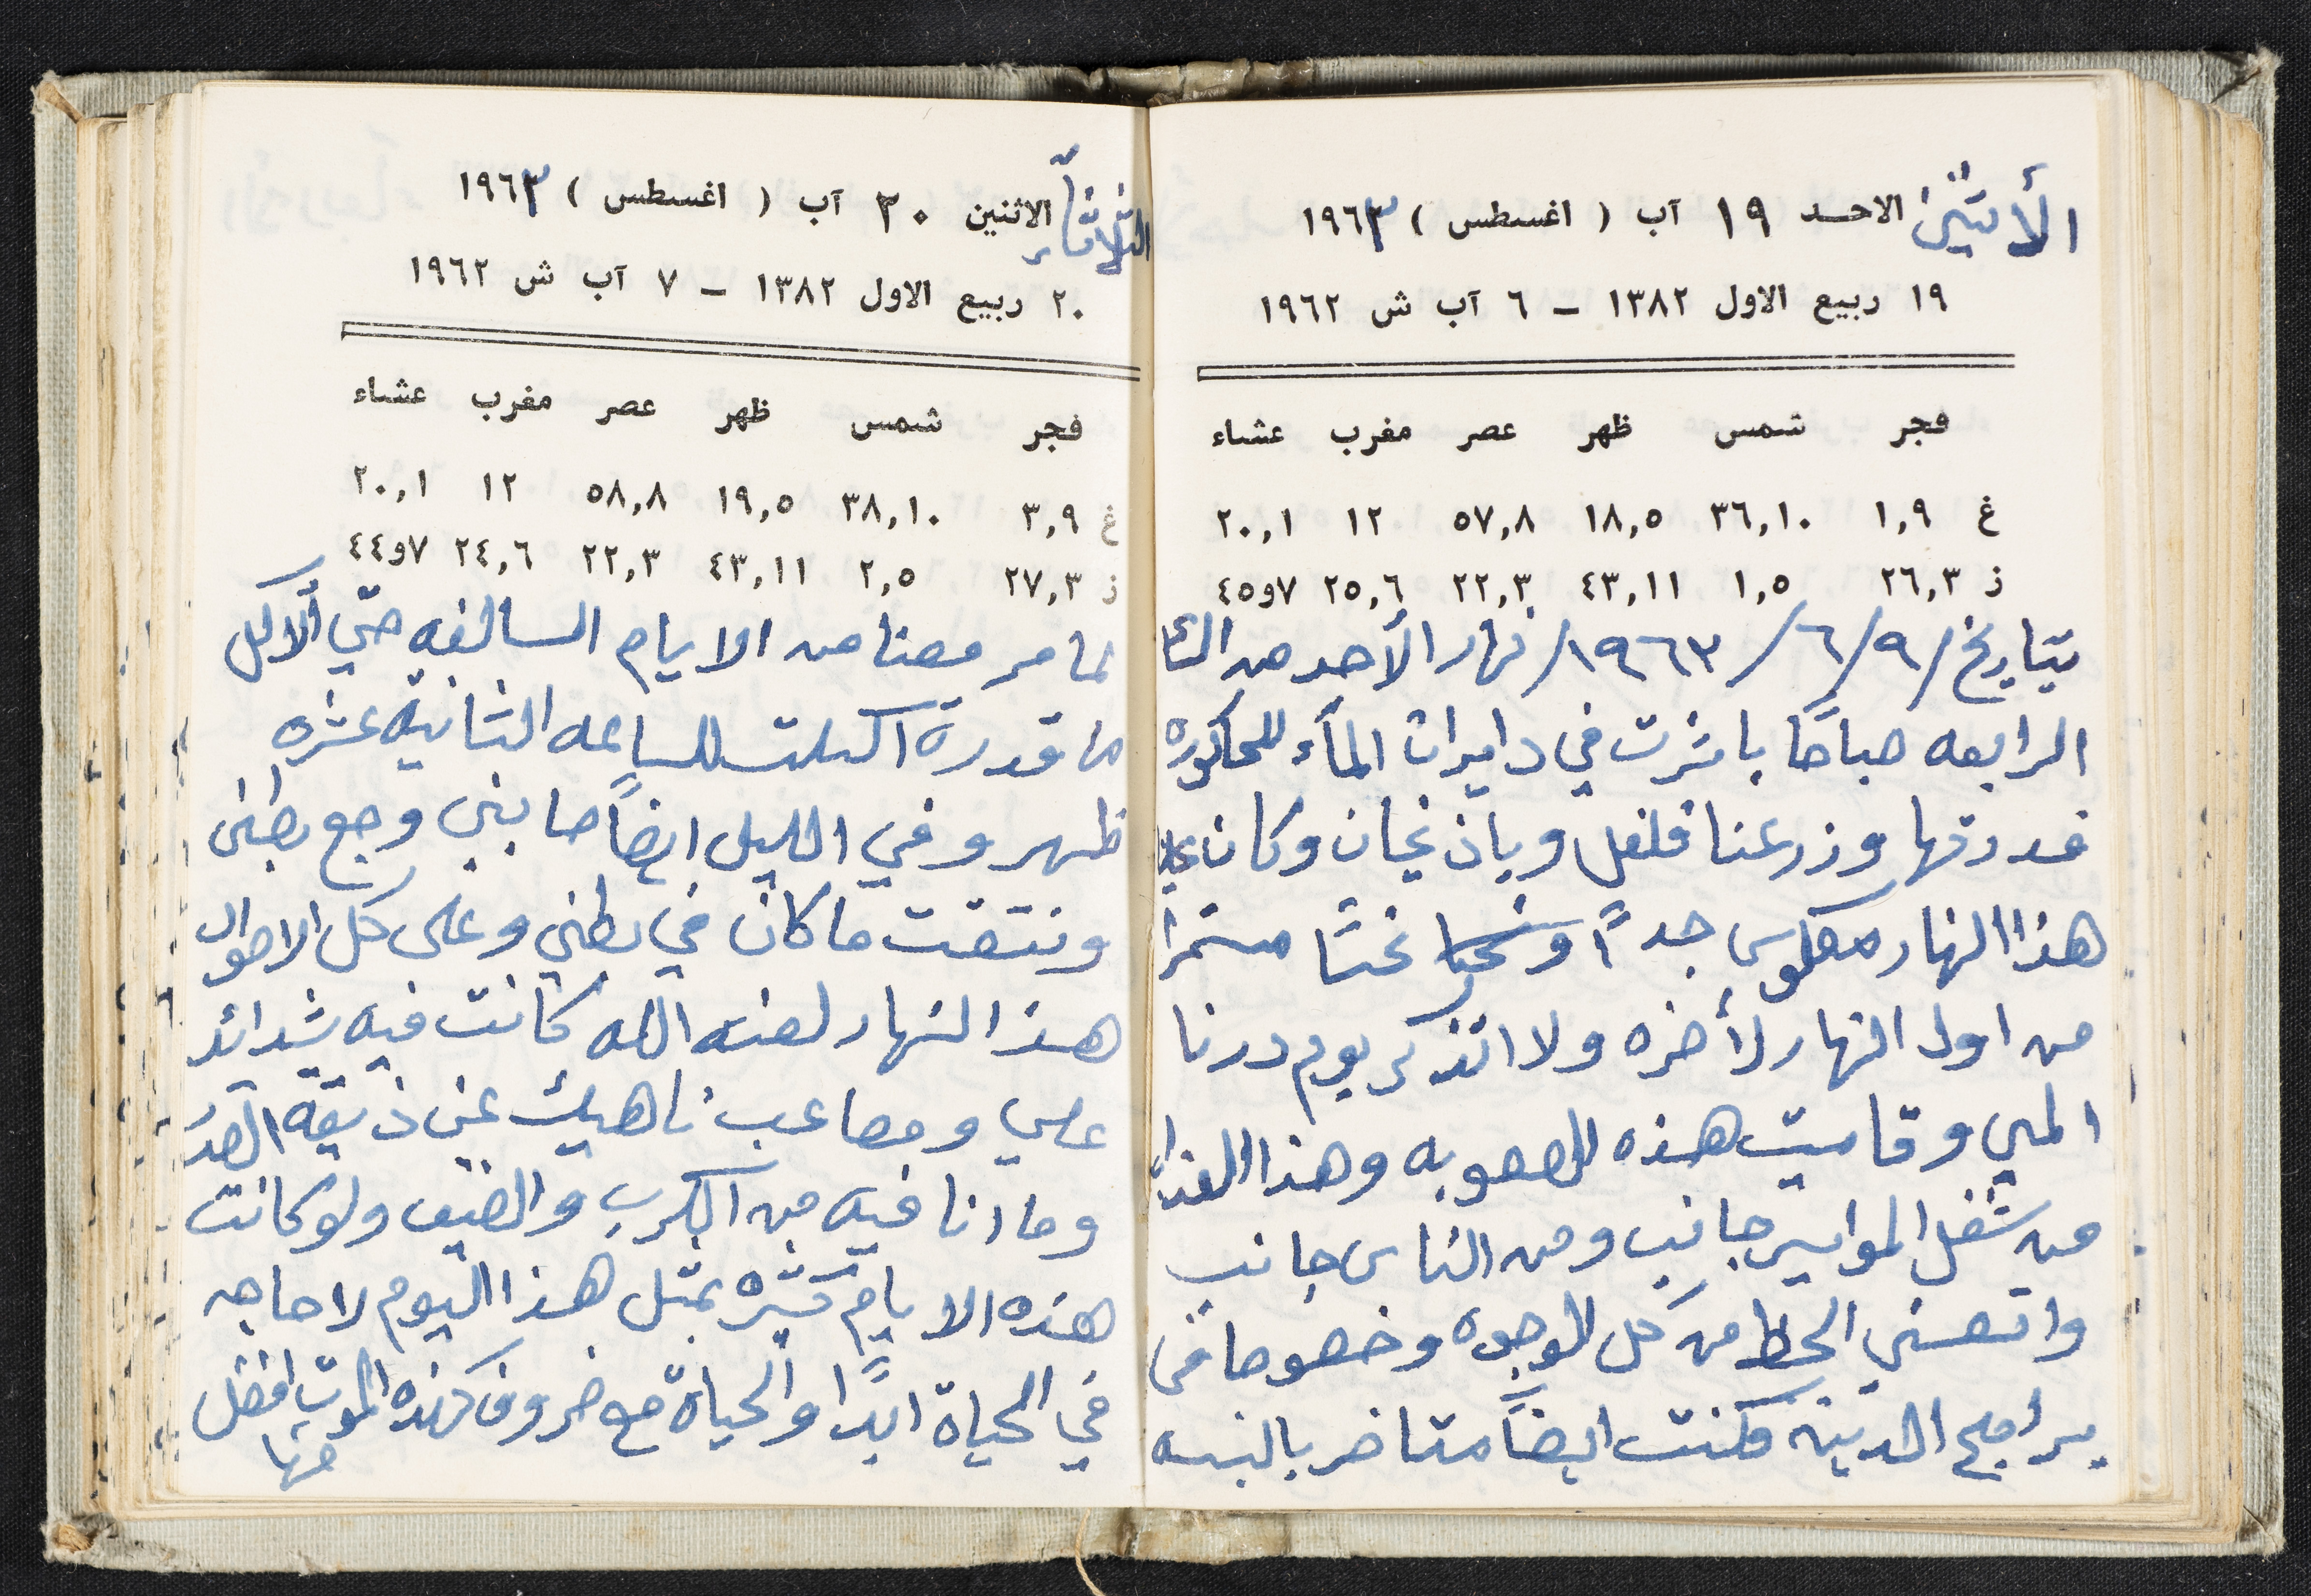 الأثنين الاحد ١٩ آب ( اغسطس ) ١٩٦٣
١٩ ربيع الاول ١٣٨٢ – ٦ آب ش ١٩٦٢
فجر شمس ظهر عصر مغرب عشاء
غ ١,٩ ٣٦,١٠ ١٨,٥ ٥٧,٨ ١٢ ٢٠,١
ز ٢٦,٣ ١,٥ ٤٣,١١ ٢٢,٣ ٢٥,٦ ٧و٤٥
بتاريخ /٩/ ٦/ ١٩٦٣/ نهار الأحد من
الرابعه صباحًا باشرت في دايرات المآء للحاكوره
فدرتها وزرعنا فلفل وباذنجان وكان
هذا النهار معكوس جدًا و نحسًا مستمرا
من اول النهار لأخره ولا اتذكر يوم درنا
المي وقاميت هذه الصعوبه وهذا العذاب
من شغل المواسير جانب ومن الناس جانب
واتعسني الحظ من كل الوجوه وخصوصا في
برامج المدينه فكنت ايضًا متاخر بالنسبه
الثلاثاء الاثنين ٢٠ آب ( اغسطس ) ١٩٦٣
٢٠ ربيع الاول ١٣٨٢ – ٧ آب ش ١٩٦٢
فجر شمس ظهر عصر مغرب عشاء
غ ٣,٩ ٣٨,١٠ ١٩,٥ ٥٨,٨ ١٢ ٢٠,١
ز ٢٧,٣ ٢,٥ ٤٣,١١ ٢٢,٣ ٢٤,٦ ٧و٤٤
لما مر معنا من الايام السالفه حتى ألاكل
ما قدرة اكلت للساعه الثانية عشره
ظهر وفي الليل ايضًا صابني وجع بطني
ونتقت ما كان في بطني وعلى كل الاحوال
هذا النهار لعنه الله كانت فيه شدائد
علي ومصاعب ناهيك عن ذيقة الصدر
وما انا فيه من الكرب والضيق ولو كانت
هذه الايام كثيره بمثل هذا اليوم لا حاجه
في الحياة ابدًا والحياة مع ضروف كهذه الموت افضل
منها